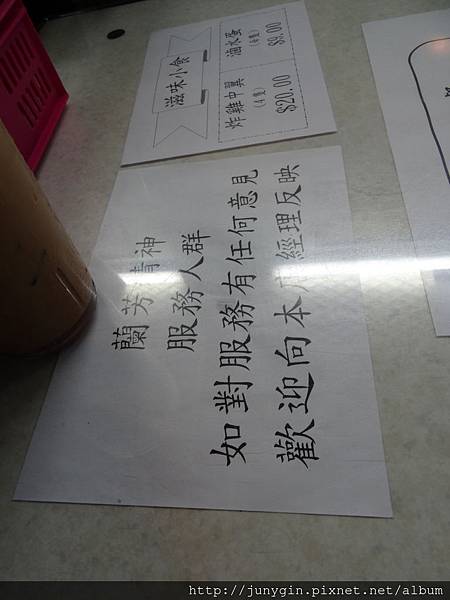 滋味小食
炸雞中翼
(4隻)
$20.00
滷水蛋
$9.00
蘭芳精神
服務人群
如對服務有任何意見
歡迎向本店經理反映
http://junygin.pixnet.net/album